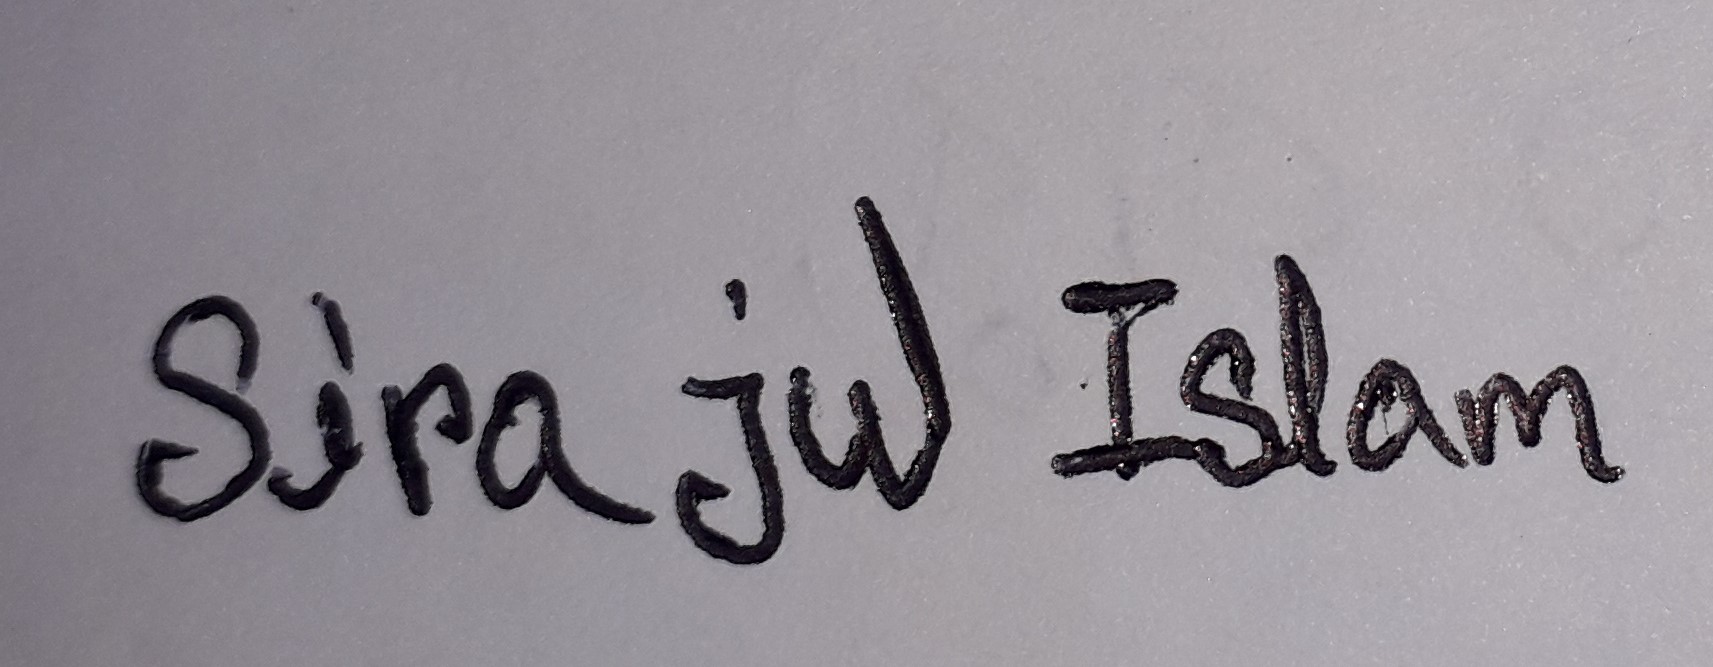 Sirajul Islam